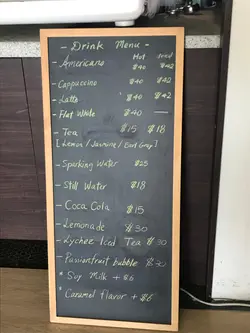 - Drink Menu -
Hot Iced
- Americano $40 $42
- Cappuccino $40 $42
- Latte $40 $42
- Flat White $40 —
- Tea $15 $18
[ Lemon / Jasmine / Earl Gray ]
- Sparking Water $25
- Still Water $18
- Coca Cola $15
- Lemonade $30
- Lychee Iced Tea $30
- Passionfruit bubble $30
* Soy Milk + $6
* Caramel flavor + $6